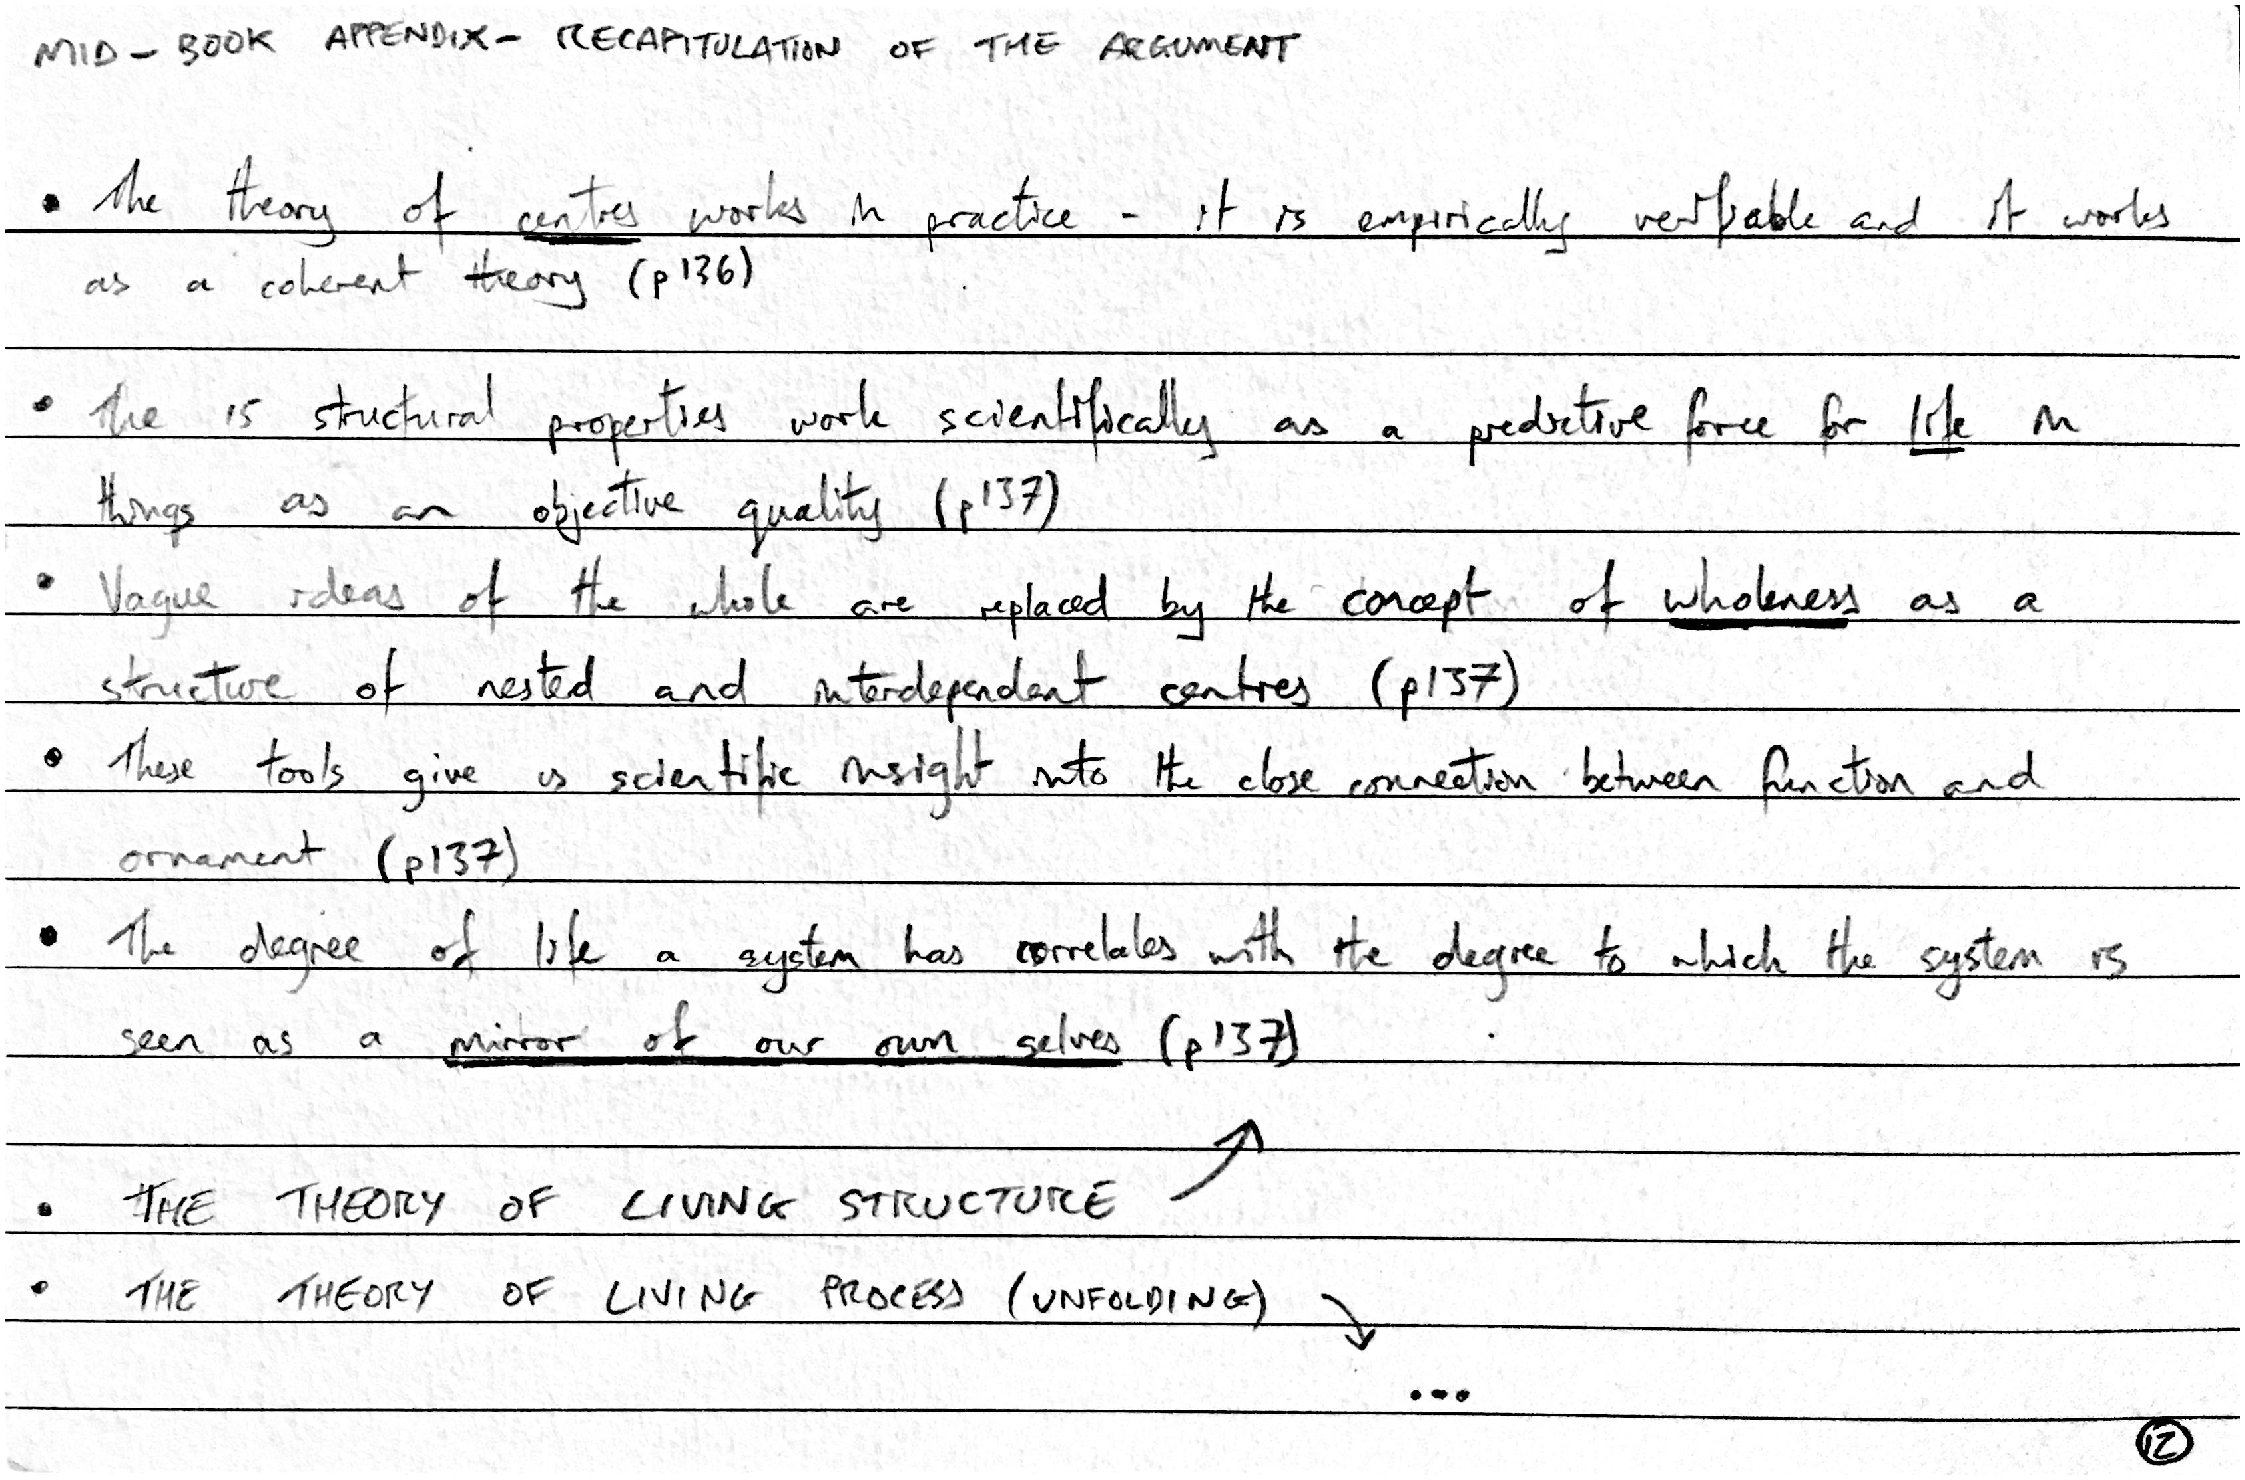 MID-BOOK APPENDIX- RECAPITULATION OF THE ARGUMENT
• The theory of centres works in practice - it is empirically verifiable and it works
as a coherent theory (p136)
• The 15 structural properties work scientifically as a predictive force for life in
things as an objective quality (p137)
• Vague ideas of the whole are replaced by the concept of wholeness as a
structure of nested and interdependent centres (p137)
• These tools give us scientific insight into the close connection between function and
ornament (p137)
• The degree of life a system has correlates with the degree to which the system is
seen as a mirror of our own selves (p137)
• THE THEORY OF LIVING STRUCTURE
• THE THEORY OF LIVING PROCESS (UNFOLDING)
...
12